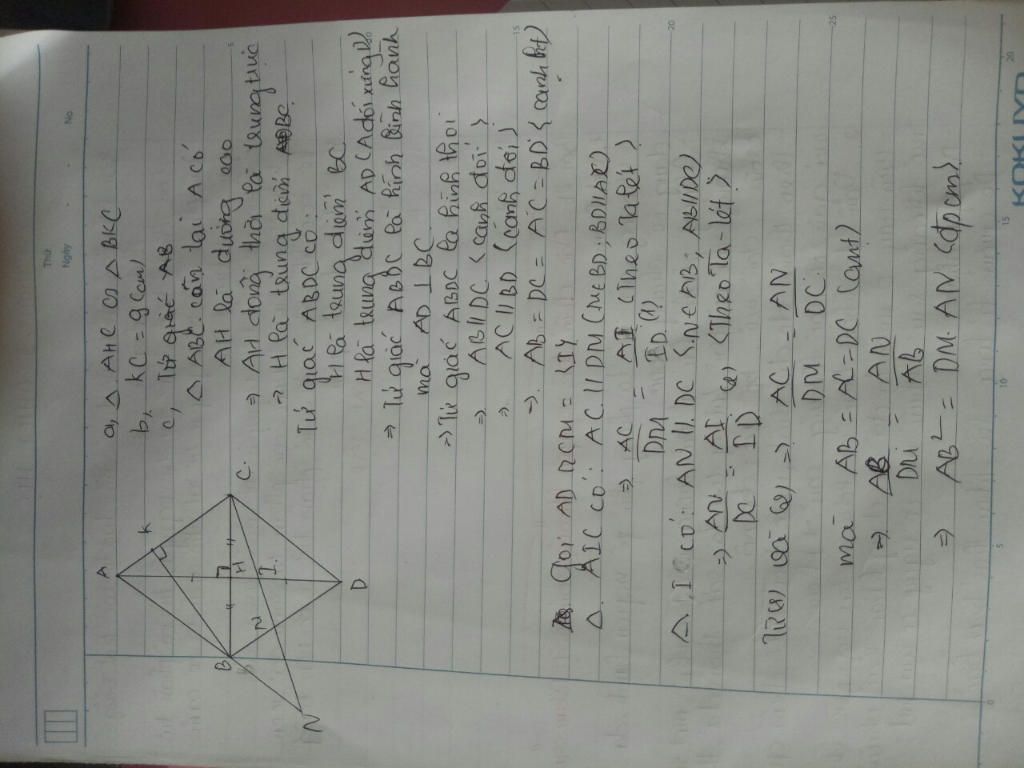 Thứ
Ngày
No.
A
K
B
H
C
I
N
D
N
a, △ AHC ∽ △ BKC
b, KC = 9(cm)
c, Tứ giác AB
△ ABC cân tại A có
AH là đường cao
⇒ AH đồng thời là trung trực
⇒ H là trung điểm BC
Tứ giác ABDC có:
H là trung điểm BC
H là trung điểm AD (A đối xứng D)
⇒ Tứ giác ABDC là hình bình hành
mà AD ⊥ BC
⇒ Tứ giác ABDC là hình thoi
⇒ AB // DC (cạnh đối)
⇒ AC // BD (cạnh đối)
⇒ AB = DC = AC = BD (cạnh)
Gọi AD ∩ CM = {I}
△ AIC có: AC // DM (M∈BD; BD//AC)
⇒ AC/DM = AI/ID (1) (Theo Ta lét)
△ I có: AN // DC (N∈AB, AB//DC)
⇒ AN/DC = AI/ID (2) (Theo Ta-lét)
Từ (1) và (2) ⇒ AC/DM = AN/DC
mà AB = AC = DC (cmt)
⇒ AB/DM = AN/AB
⇒ AB² = DM. AN (đpcm)
5
10
15
20
25
0
5
10
15
20